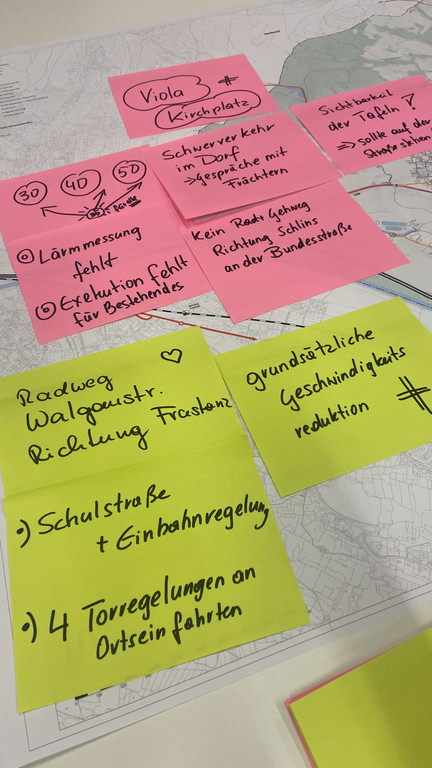 Viola #
Kirchplatz
Sichtbarkeit
der Tafeln !
⇒ sollte auf der
Straße stehen
Schwerverkehr
im Dorf
⇒ Gespräche mit
Frächtern
30 40 50
a) Lärmmessung
fehlt
b) Exekution fehlt
für Bestehendes
Kein Rad + Gehweg
Richtung Schlins
an der Bundesstraße
Radweg
Walgaustr.
Richtung Frastanz
•) Schulstraße
+ Einbahnregelung
•) 4 Torregelungen an
Ortseinfahrten
grundsätzliche
Geschwindigkeits
reduktion #